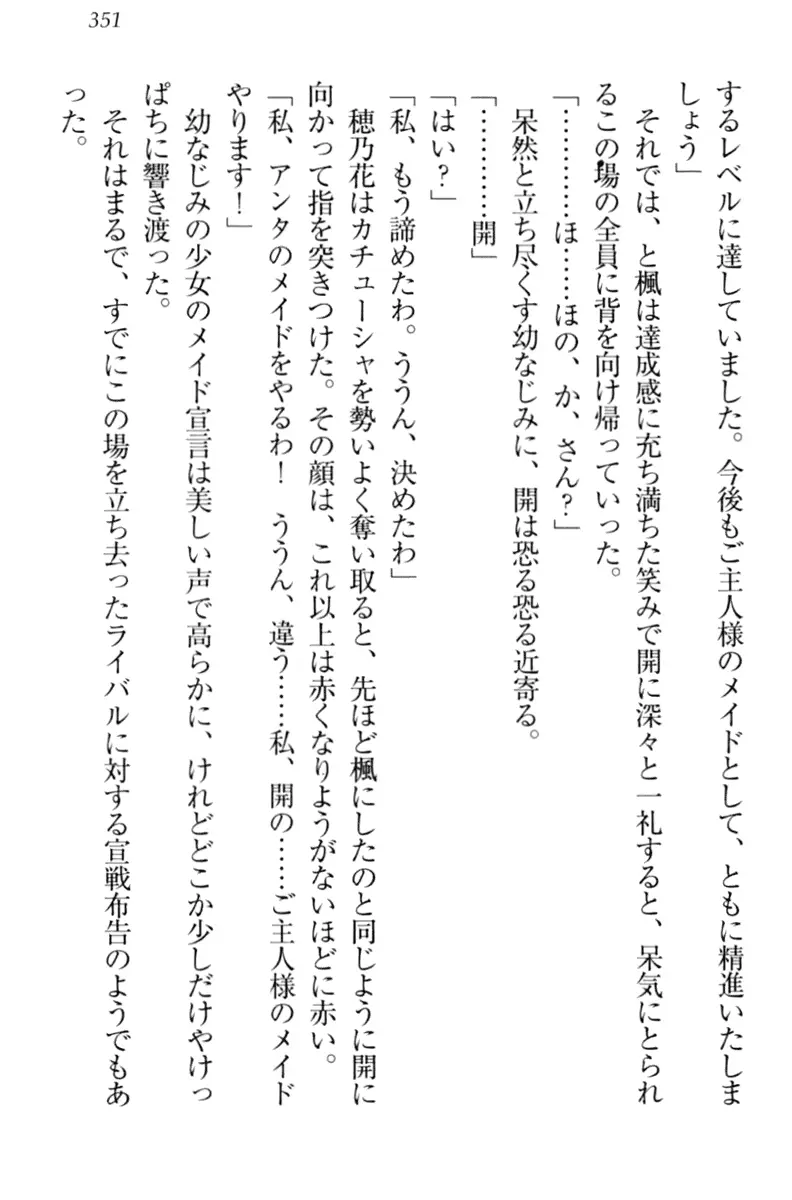 351
するレベルに達していました。今後もご主人様のメイドとして、ともに精進いたしま
しょう」
それでは、と楓は達成感に充ち満ちた笑みで開に深々と一礼すると、呆気にとられ
るこの場の全員に背を向け帰っていった。
「…………ほ……ほの、か、さん？」
呆然と立ち尽くす幼なじみに、開は恐る恐る近寄る。
「…………開」
「はい？」
「私、もう諦めたわ。ううん、決めたわ」
穂乃花はカチューシャを勢いよく奪い取ると、先ほど楓にしたのと同じように開に
向かって指を突きつけた。その顔は、これ以上は赤くなりようがないほどに赤い。
「私、アンタのメイドをやるわ！　ううん、違う……私、開の……ご主人様のメイド
やります！」
幼なじみの少女のメイド宣言は美しい声で高らかに、けれどどこか少しだけやけっ
ぱちに響き渡った。
それはまるで、すでにこの場を立ち去ったライバルに対する宣戦布告のようでもあ
った。